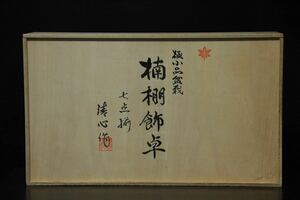 極小品盆栽
楠棚飾卓
七点揃
清心作